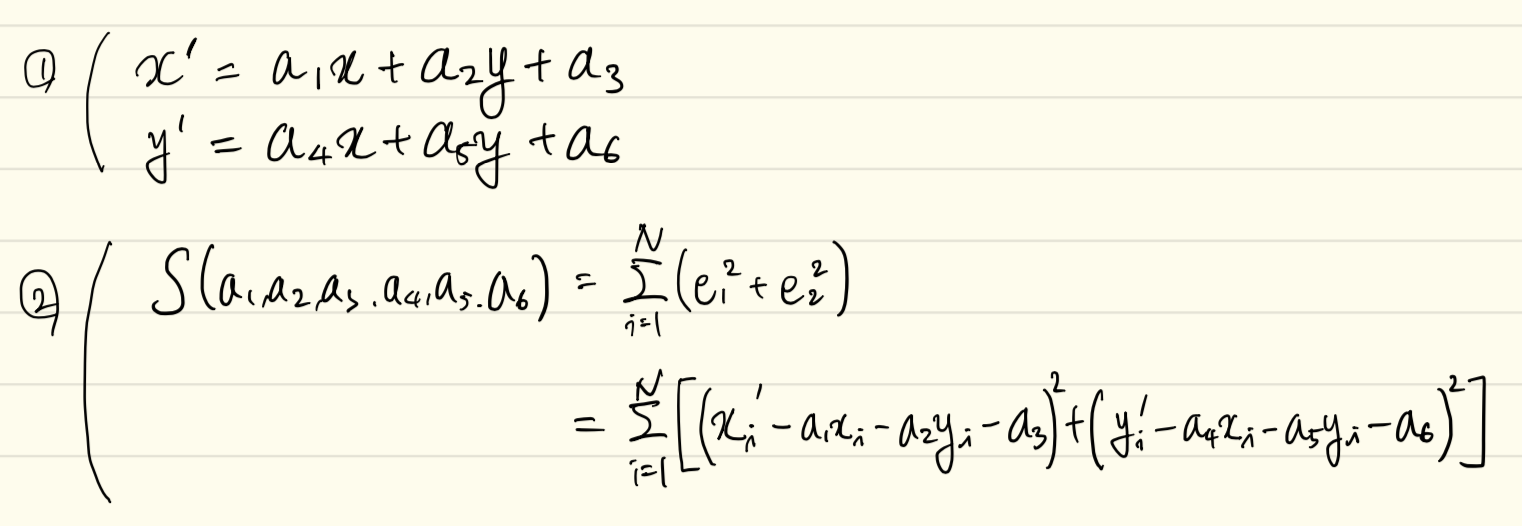 ① ( x' = a₁x + a₂y + a₃
y' = a₄x + a₅y + a₆
② ( S(a₁,a₂,a₃.a₄,a₅.a₆) = Σᵢ₌₁ᴺ (e₁² + e₂²)
= Σᵢ₌₁ᴺ [(xᵢ' - a₁xᵢ - a₂yᵢ - a₃)² + (yᵢ' - a₄xᵢ - a₅yᵢ - a₆)²]